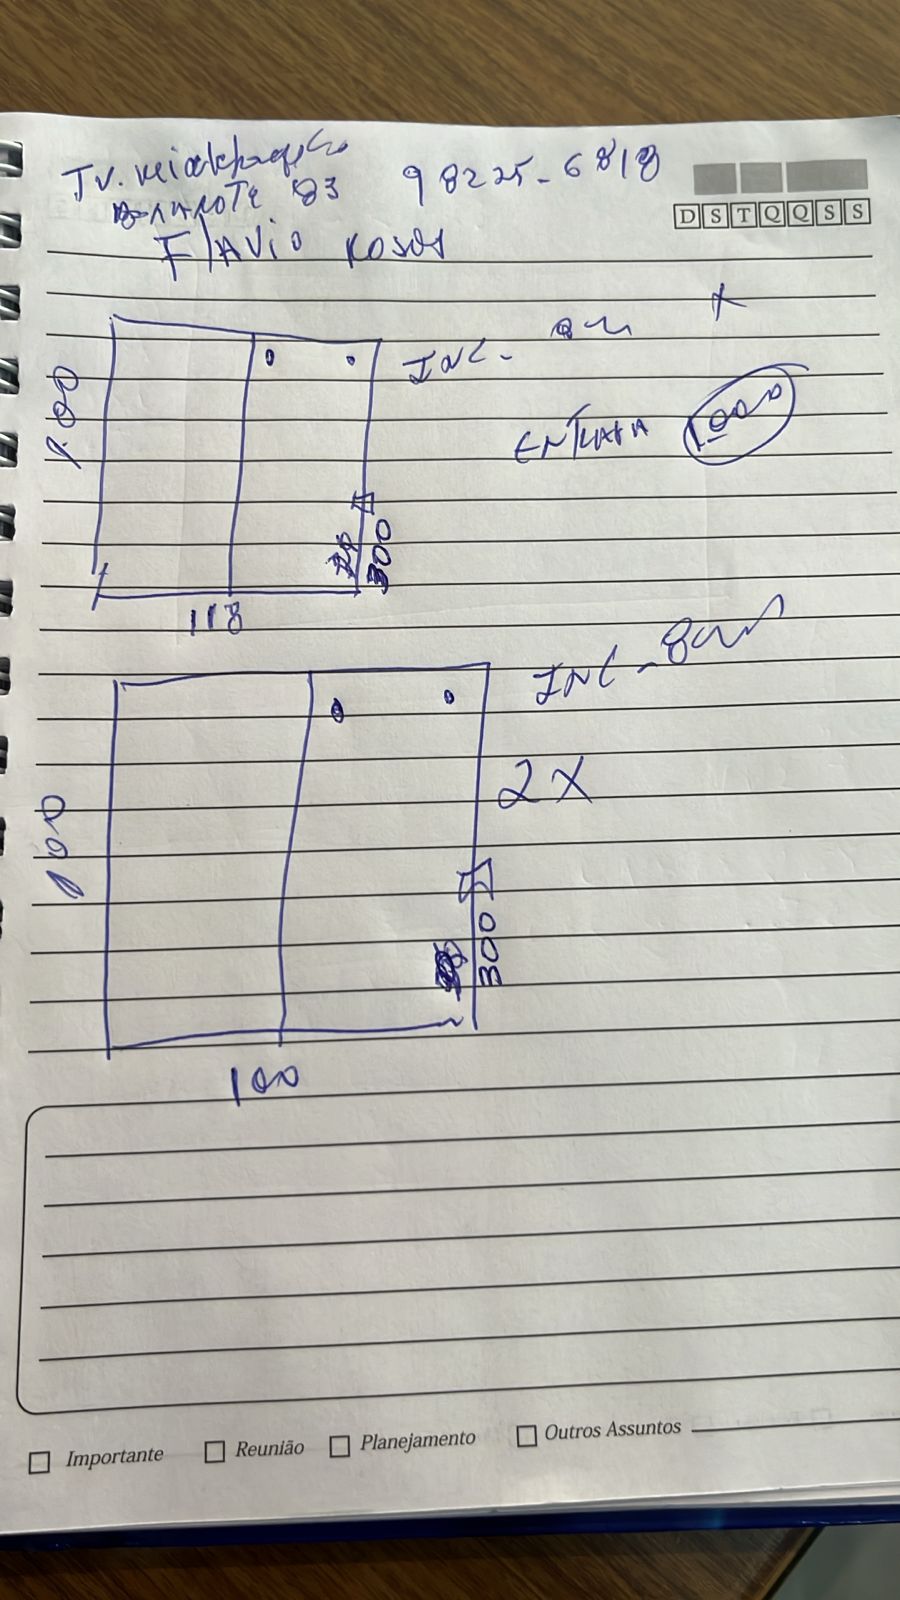 Tv.
83
98225-6818
Flavio
D S T Q Q S S
INC-
ENTRADA 1000
300
118
INC - 8mm
2X
300
100
100
Importante
Reunião
Planejamento
Outros Assuntos